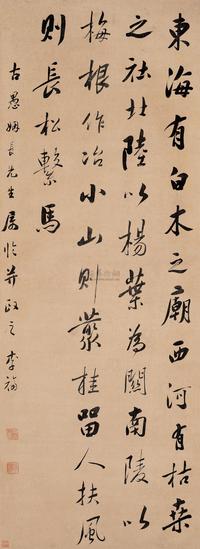 東海有白木之廟西河有枯桑
之社北陸以楊葉為關南陵以
梅根作冶小山則叢桂留人扶風
則長松繫馬
古愚姻長先生屬臨并政之 李福